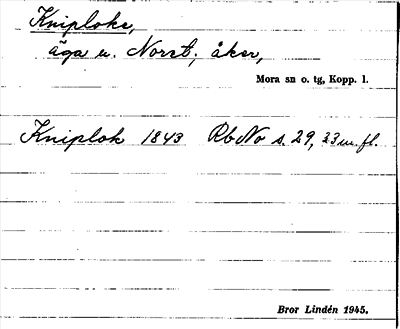 Kniploke,
äga u. Norst; åker,
Mora sn o. tg, Kopp. l.
Kniplok 1843 RbNo s. 29, 33 m. fl.
Bror Lindén 1945.